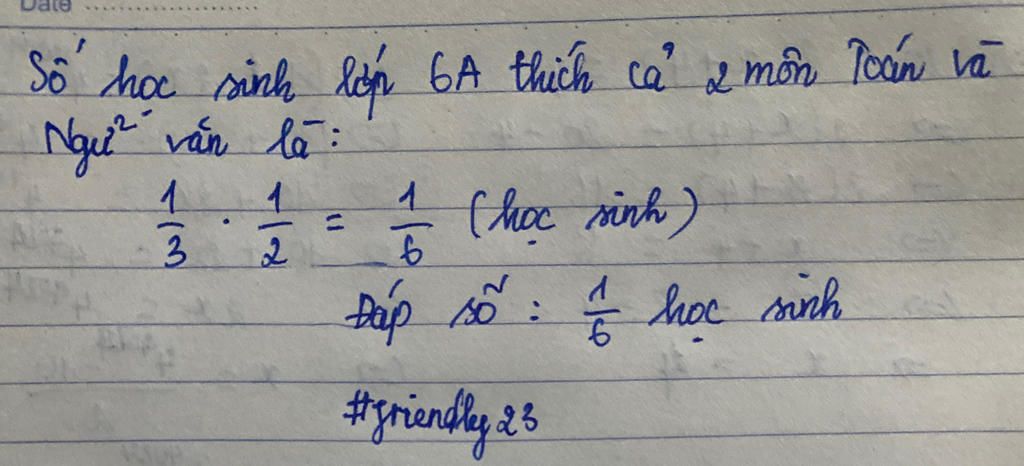 Date
Số học sinh lớp 6A thích cả 2 môn Toán và
Ngữ văn là:
1/3 . 1/2 = 1/6 (học sinh)
Đáp số : 1/6 học sinh
#friendly23